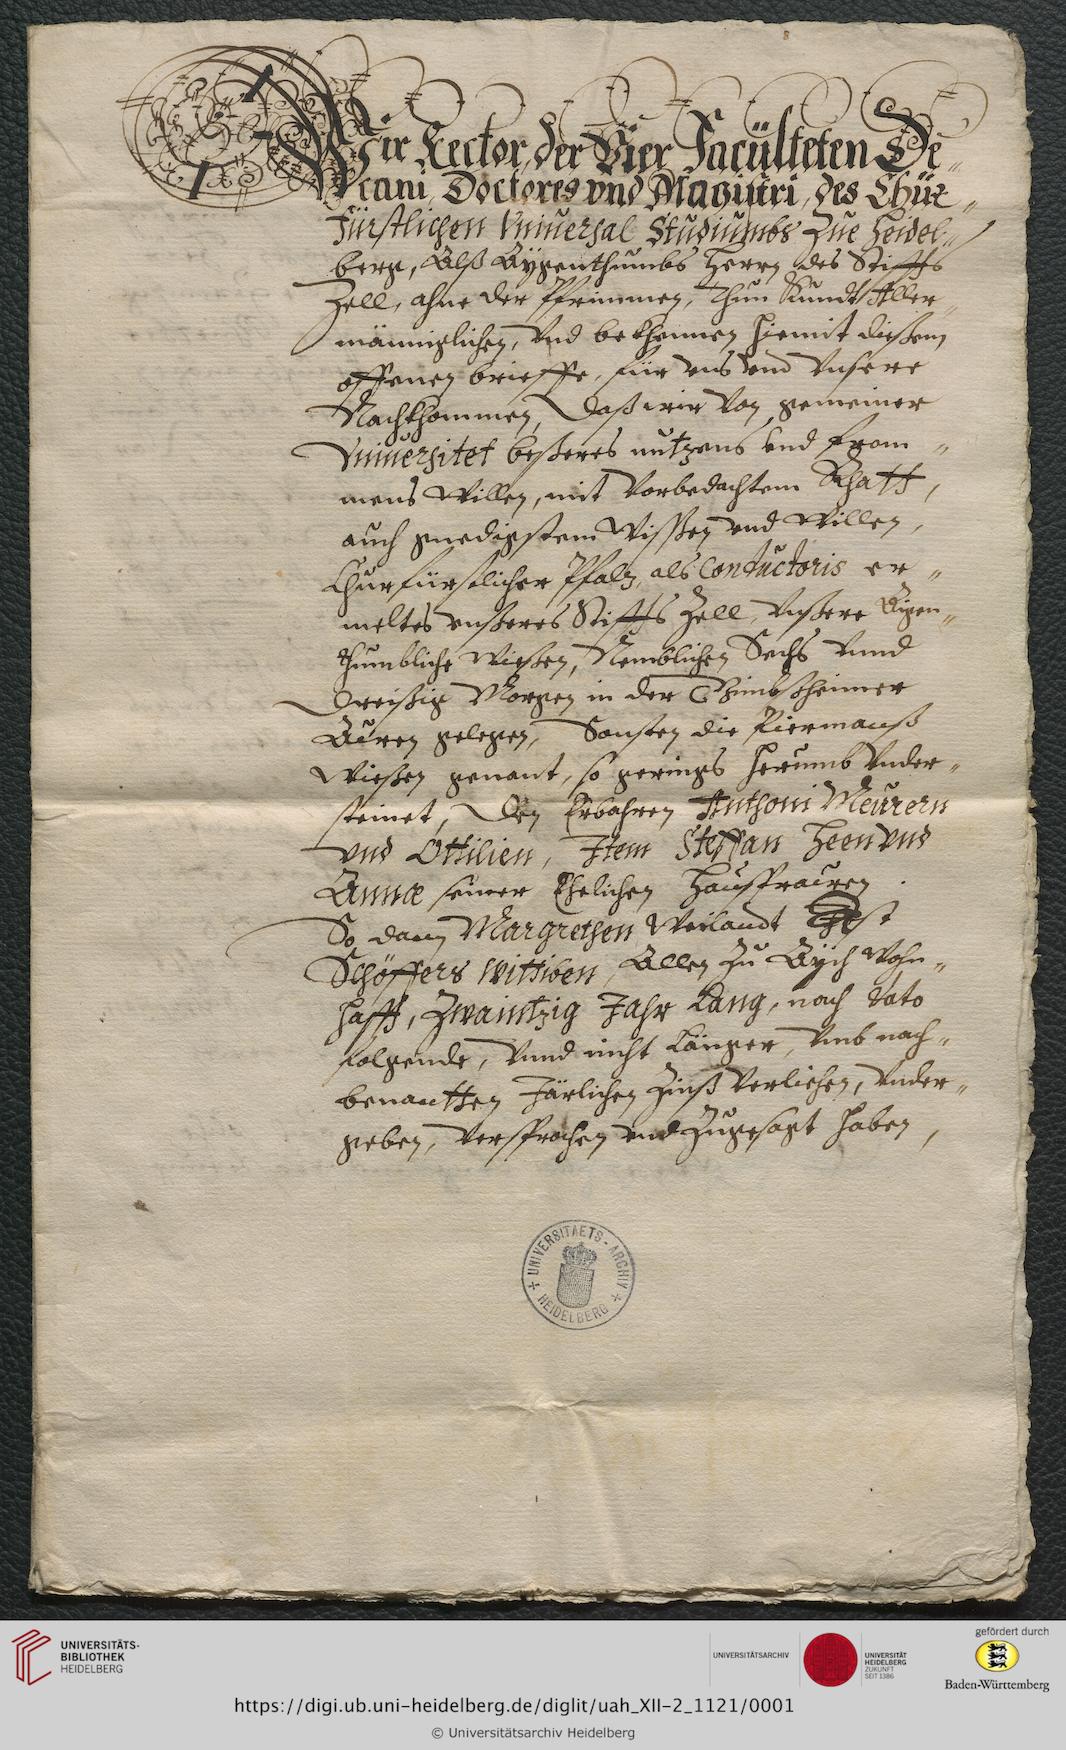 Wir Rector, der Vier Facülteten De-„
cani, Doctores vnd Magistri, des Chür-„
Fürstlichen Vniuersal Studiumbs Zue Heidel-„
berg, Alß Aygenthumbs Herrn des Stiffts
Zell, ahne der Pfrimmen, Thun Kundt Aller-„
männiglichen, Vnd bekhennen hiemit dießem
offenen brieffe, für vns vnd Vnsere
Nachkhommen, Daß wir Von gemeiner
Vniuersitet beßeres nutzens vnd from-„
mens Willen, mit Vorbedachtem Rhatt,
auch gnedigstem Wissen vnd Willen,
Churfürstlicher Pfaltz, als Conductoris er-„
meltes vnßeres Stiffts Zell, Vnßere Eigen-„
thumbliche Wießen, Nemblichen Sechs Vnnd
Dreißig Morgen in der Gimbßheimer
Auren gelegen, Sonsten die Biermanß
Wießen genant, so gerings herumb Vnder-„
steinet, Den Erbahren Anthoni Meurern
vnd Ottilien, Item Steffan Heen vnd
Annæ seiner Ehelichen Haußfrauen.
So dann Margrethen Weilandt
Schöffers Wittiben, Allen Zu Aych Wohn-„
hafft, Zwaintzig Jahr Lang, nach dato
folgende, Vnnd nicht Länger, Vmb nach-„
benantten Järlichen Zinß Verliehen, Vnder-„
geben, Versprochen vnd Zugesagt haben,
UNIVERSITAETS-ARCHIV
HEIDELBERG
UNIVERSITÄTS-
BIBLIOTHEK
HEIDELBERG
UNIVERSITÄTSARCHIV
UNIVERSITÄT
HEIDELBERG
ZUKUNFT
SEIT 1386
gefördert durch
Baden-Württemberg
https://digi.ub.uni-heidelberg.de/diglit/uah_XII-2_1121/0001
© Universitätsarchiv Heidelberg